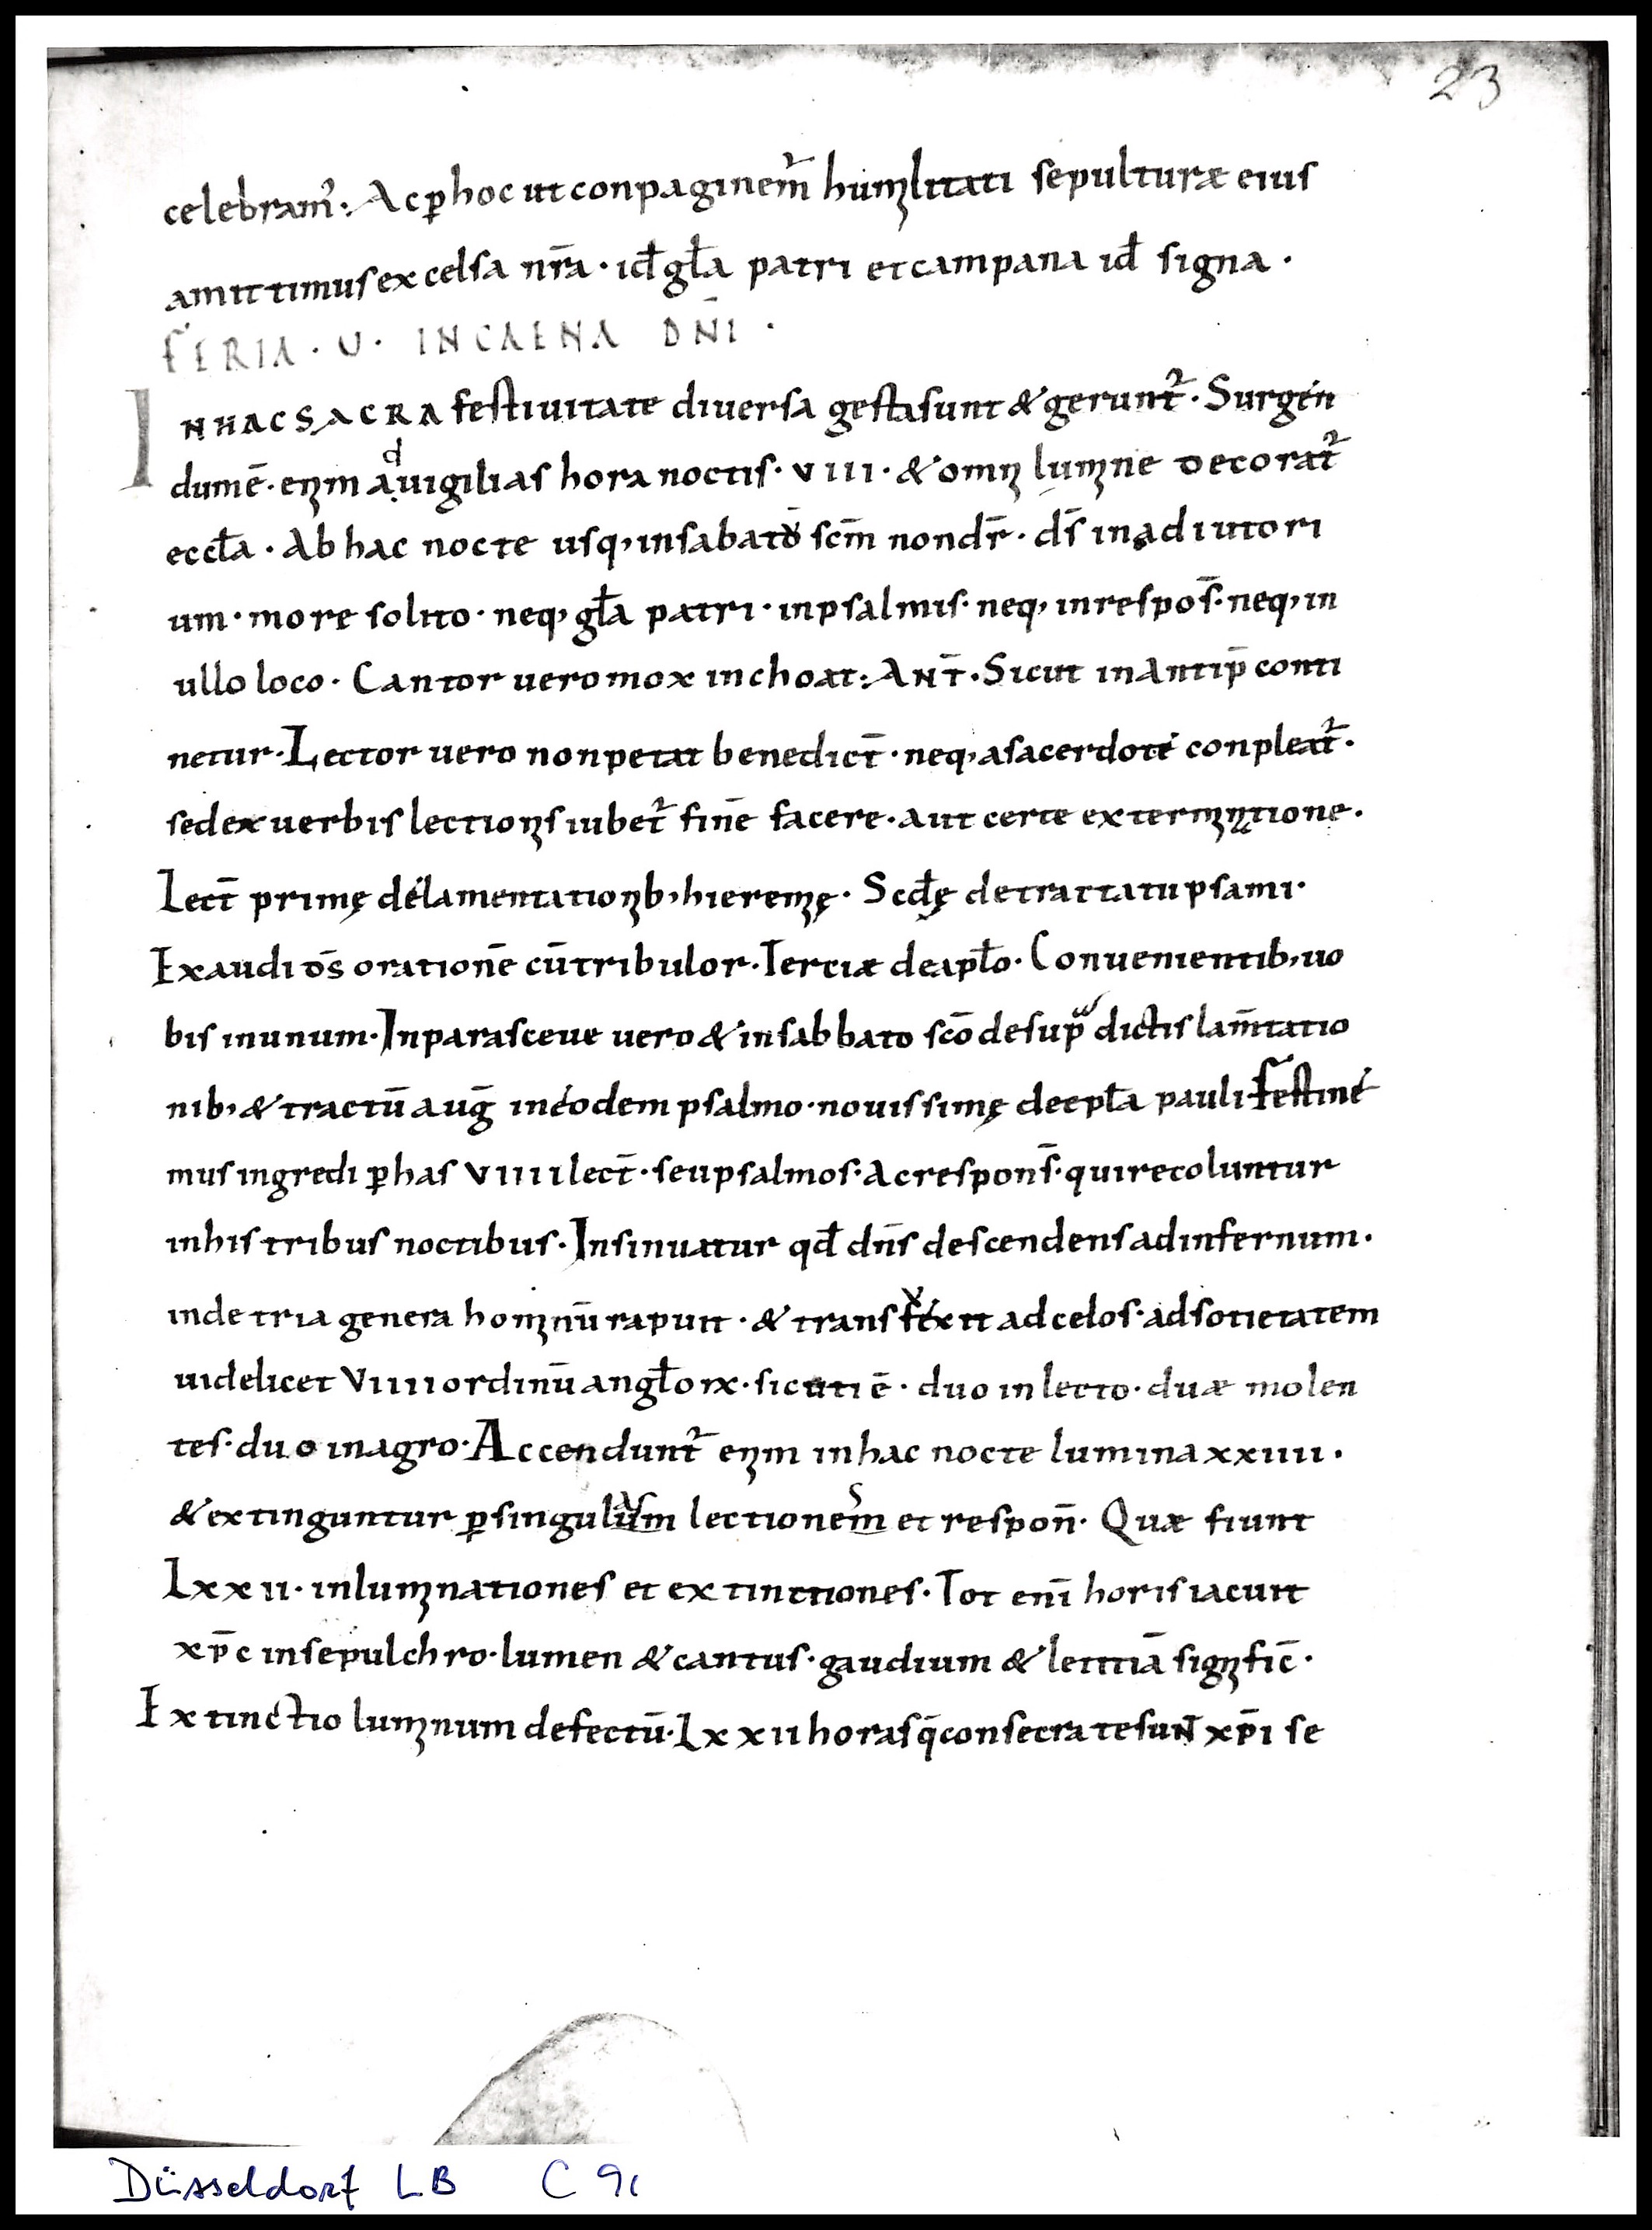 23
celebram᷒ : Ac ꝑ hoc ut conpaginem̃ humılitati sepulturæ eius
amittimus excelsa nr̄a · id̄ gła patri et campana id̄ signa ·
FERIA · U · IN CAENA DN̄I ·
IN HAC SACRA festiuitate diuersa gesta sunt & gerunt̃ · Surgen
dum ē · enim ad uigilias hora noctis · VIII · & omni lumine decorat̃
eccła · Ab hac nocte usq; in sabato sc̄m non dr̄ · ds̄ in adiutori
um · more solito · neq; gła patri · in psalmis · neq; in respos̄ · neq; in
ullo loco · Cantor uero mox inchoat : ANT̄ · Sicut in Antip̄ conti
netur · Lector uero non petat benedict̄ · neq; a sacerdote conpleat̃ ·
sed ex uerbis lectionis iubet̃ finē facere · aut certe ex terminatione ·
Lect̄ primę de lamentationib; hieremię · Scd̄ę de tractatu psami ·
Exaudi ds̄ orationē cū tribulor · Terciæ de apło · Conuenientib; uo
bis in unum · In parasceue uero & in sabbato sc̄o de supra dictis lam̄tatio
nib; & tractū auḡ in eodem psalmo · nouissimę de epła pauli festine
mus ingredi ꝑ has VIIII lect̄ · seu psalmos · ac respons̄ · qui recoluntur
in his tribus noctibus · Insinuatur qd̄ dn̄s descendens ad infernum ·
inde tria genera hominū rapuit · & transuexit ad celos · ad sotietatem
uidelicet VIIII ordinū angłoꝝ · sicuti ē · duo in lecto · duæ molen
tes · duo in agro · Accendunt̃ enim in hac nocte lumina xxIIII ·
& extinguntur ꝑ singulas lectiones et respon̄ · Quæ fiunt
Lxx II · inluminationes et extinctiones · Tot enī horis iacuit
xp̄c in sepulchro · lumen & cantus · gaudium & letitiā signific̄ ·
Extinctio luminum defectū · Lxx II horas q̄ consecrate sunt xp̄i se
Düsseldorf LB C 91